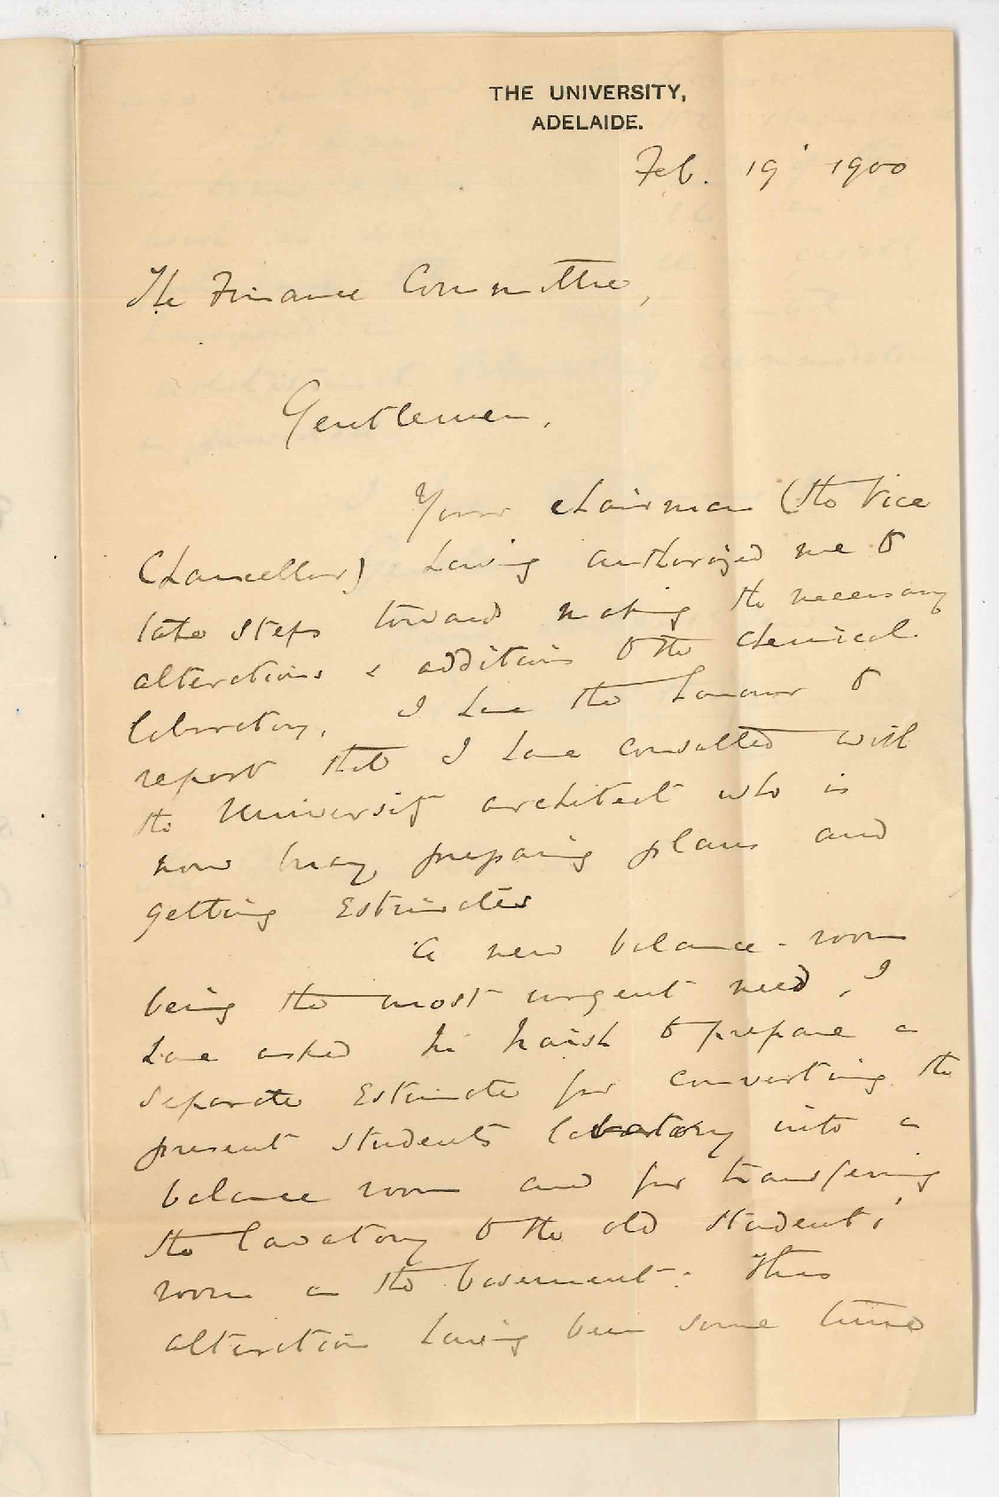 THE UNIVERSITY,
ADELAIDE.
Feb. 19 1900
The Finance Committee,
Gentlemen,
Your chairman (the Vice
Chancellor) having authorized me to
take steps toward making the necessary
alterations & additions to the chemical
laboratory, I have the honour to
report that I have consulted with
the University architect who is
now busy preparing plans and
getting estimates
A new balance-room
being the most urgent need, I
have asked to prepare a
separate estimate for converting the
present students lavatory into a
balance room and for transferring
the lavatory to the old students'
room in the basement. This
alteration having been some time